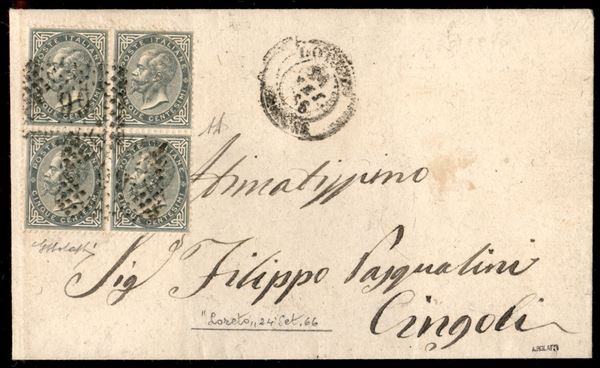 POSTE ITALIANE
CINQUE CENTESIMI
POSTE ITALIANE
CINQUE CENTESIMI
POSTE ITALIANE
CINQUE CENTESIMI
POSTE ITALIANE
CINQUE CENTESIMI
LORETO
Stimatissimo
Sig. Filippo Pasqualini
Cingoli
"Loreto„ 24 Set. 66